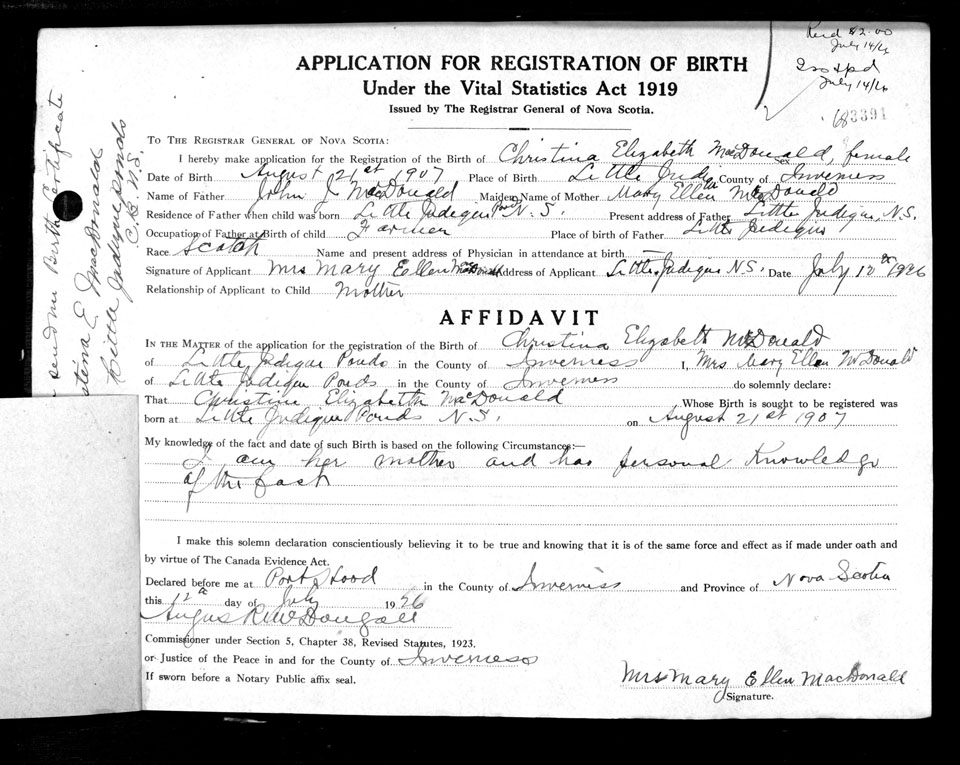 Recd $2.00
July 14/26
July 14/26
83391
APPLICATION FOR REGISTRATION OF BIRTH
Under the Vital Statistics Act 1919
Issued by The Registrar General of Nova Scotia.
TO THE REGISTRAR GENERAL OF NOVA SCOTIA:
I hereby make application for the Registration of the Birth of Christina Elizabeth MacDonald, female
Date of Birth August 21st 1907 Place of Birth Little Judique County of Inverness
Name of Father John J MacDonald Maiden Name of Mother Mary Ellen MacDonald
Residence of Father when child was born Little Judique Ponds N.S. Present address of Father Little Judique, N.S.
Occupation of Father at Birth of child Farmer Place of birth of Father Little Judique
Race Scotch Name and present address of Physician in attendance at birth
Signature of Applicant Mrs Mary Ellen MacDonald Address of Applicant Little Judique N.S. Date July 12th 1926
Relationship of Applicant to Child Mother
AFFIDAVIT
IN THE MATTER of the application for the registration of the Birth of Christina Elizabeth McDonald
of Little Judique Ponds in the County of Inverness I, Mrs. Mary Ellen McDonald
of Little Judique Ponds in the County of Inverness do solemnly declare:
That Christine Elizabeth MacDonald Whose Birth is sought to be registered was
born at Little Judique Ponds N.S. on August 21st 1907
My knowledge of the fact and date of such Birth is based on the following Circumstances:—
I am her mother and has personal Knowledge
of the fact
I make this solemn declaration conscientiously believing it to be true and knowing that it is of the same force and effect as if made under oath and
by virtue of The Canada Evidence Act.
Declared before me at Port Hood in the County of Inverness and Province of Nova Scotia
this 12th day of July 1926
Angus R McDougall
Commissioner under Section 5, Chapter 38, Revised Statutes, 1923.
or Justice of the Peace in and for the County of Inverness
If sworn before a Notary Public affix seal.
Mrs Mary Ellen MacDonald
Signature.
send Birth Certificate
Christina E. MacDonald
Little Judique Ponds
C.B. N.S.